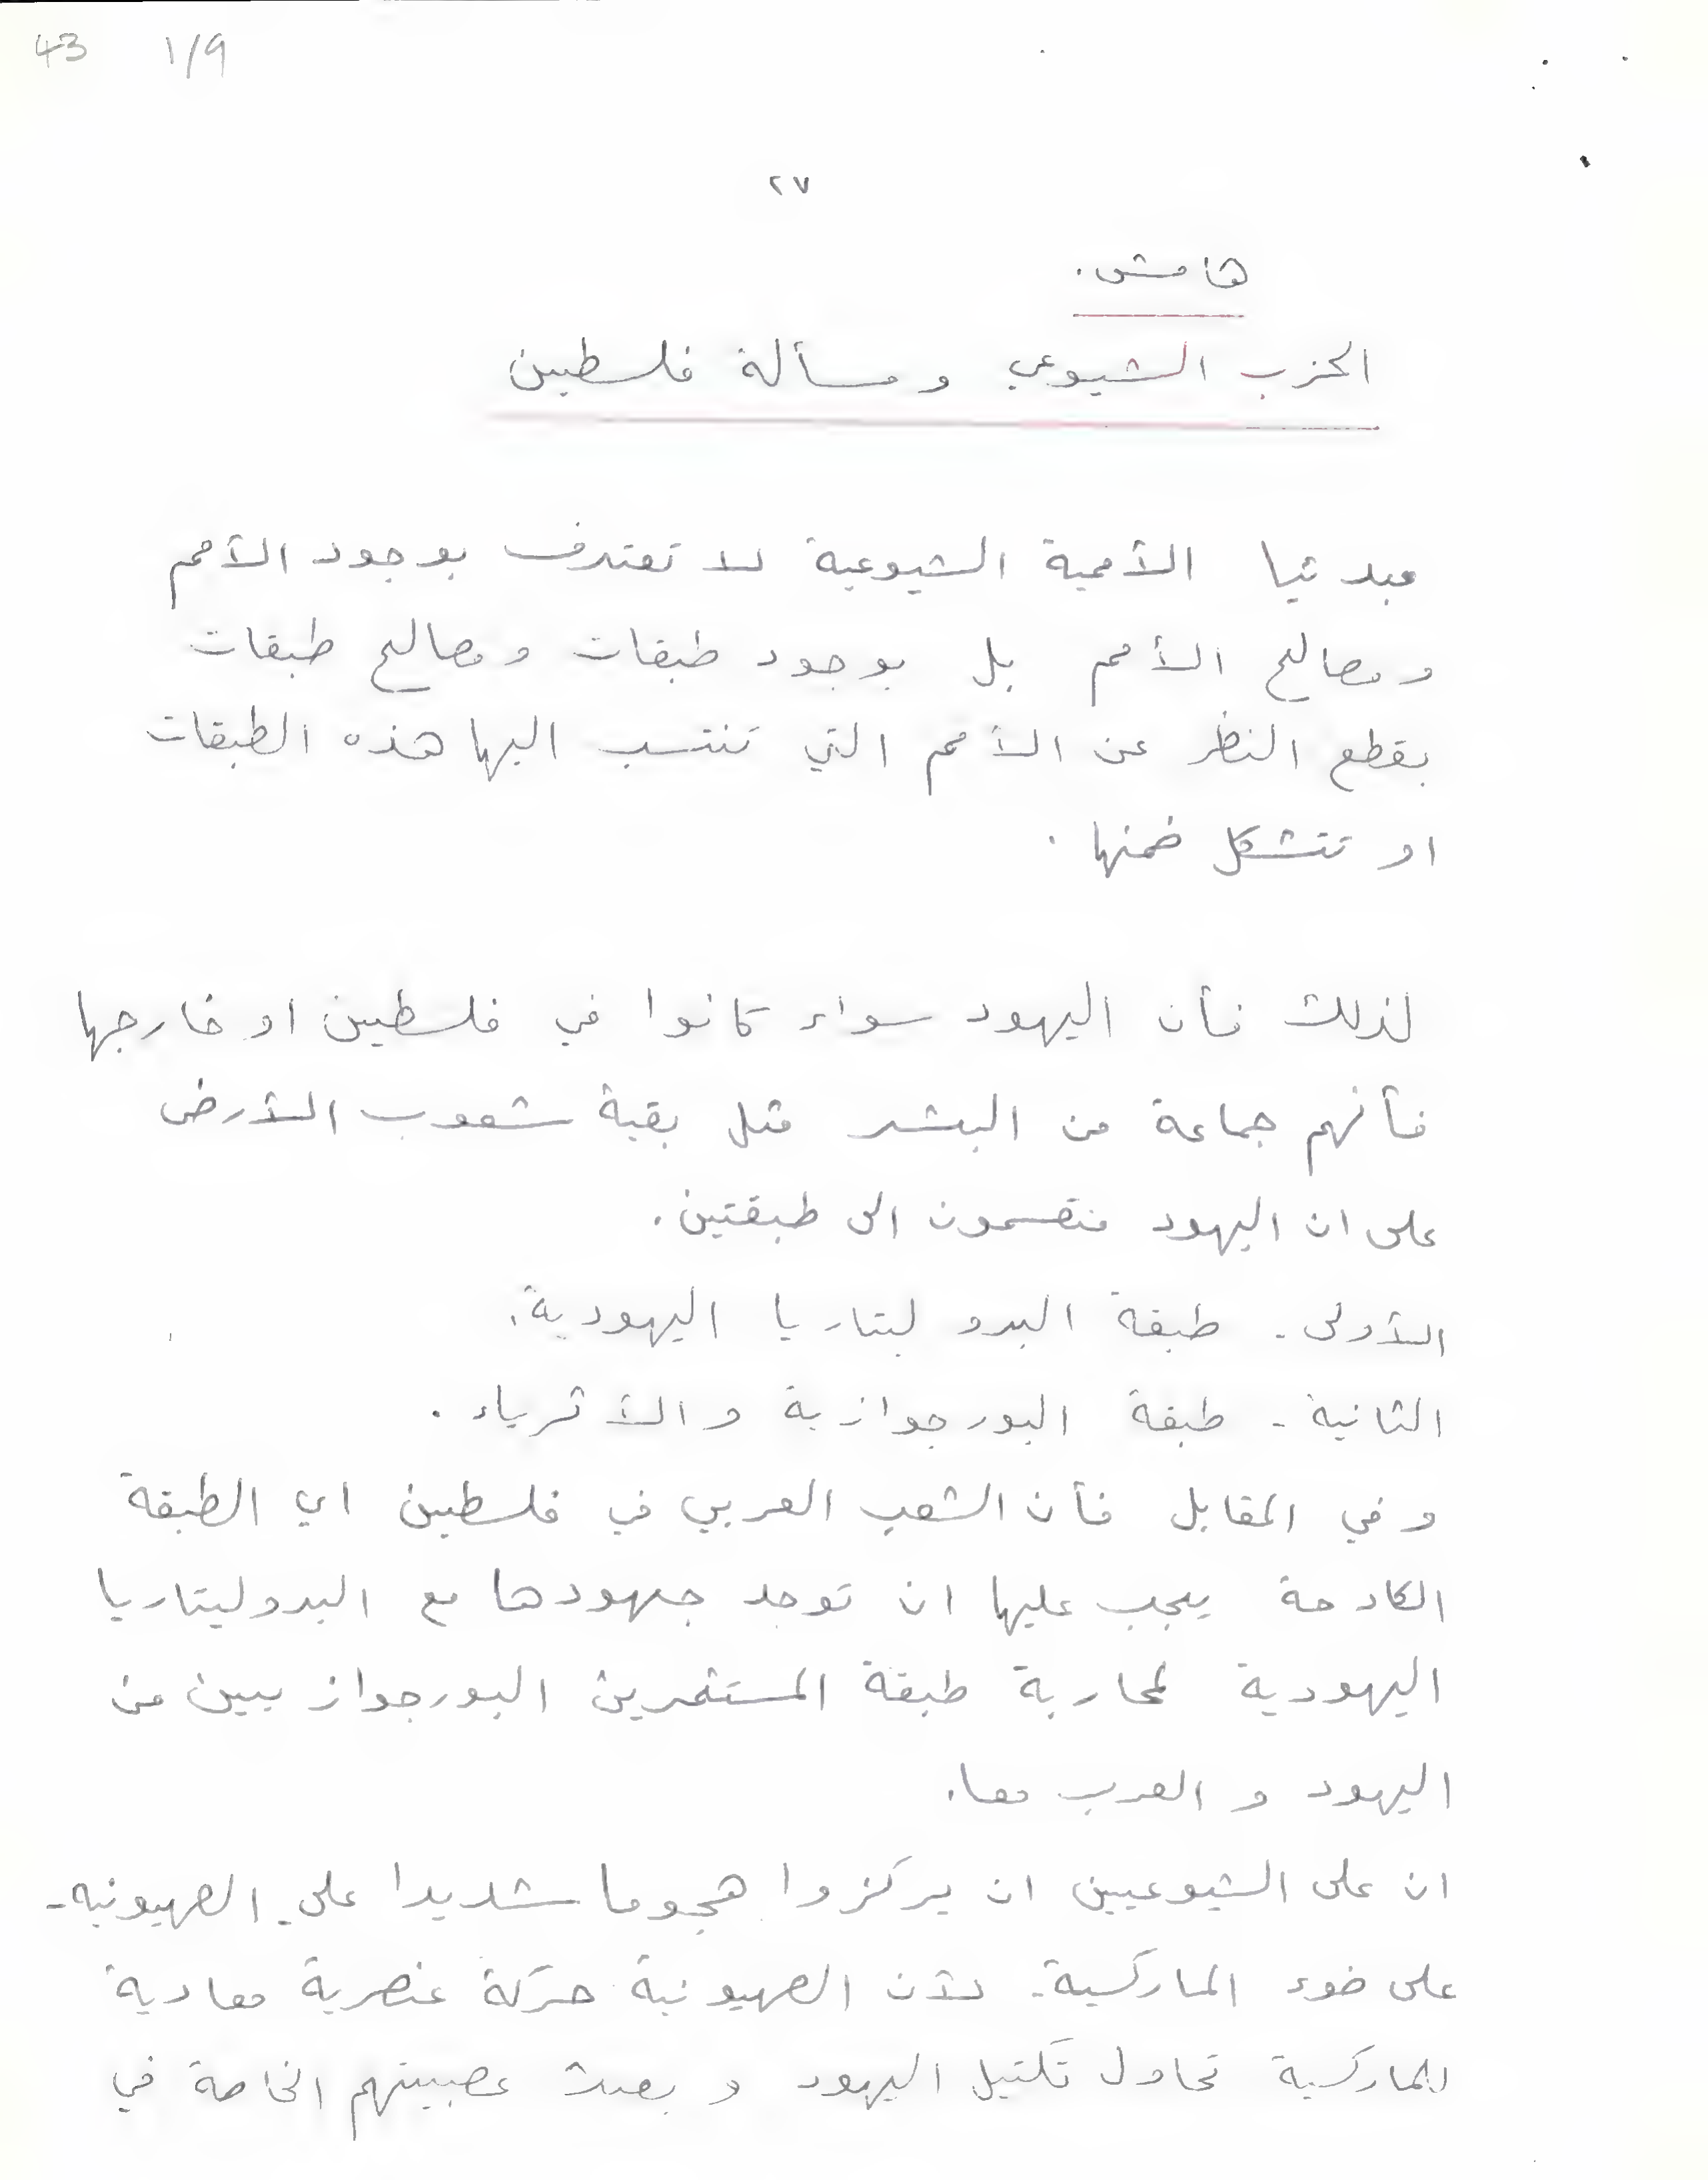 43 ١/٩
٢٧
هامش.
الحزب الشيوعي ومسألة فلسطين
مبدئيا الأممية الشيوعية لا تعترف بوجود الأمم
ومصالح الأمم بل بوجود طبقات ومصالح طبقات
بقطع النظر عن الأمم التي تنتسب اليها هذه الطبقات
او تتشكل ضمنها.
لذلك فأن اليهود سواء كانوا في فلسطين او خارجها
فأنهم جماعة من البشر مثل بقية شعوب الأرض
على ان اليهود منقسمون الى طبقتين.
الأولى - طبقة البروليتاريا اليهودية.
الثانية - طبقة البورجوازية والأثرياء.
وفي المقابل فأن الشعب العربي في فلسطين اي الطبقة
الكادحة يجب عليها ان توحد جهودها مع البروليتاريا
اليهودية لمحاربة طبقة المستثمرين البورجوازيين من
اليهود والعرب معا.
ان على الشيوعيين ان يركزوا هجوما شديدا على الصهيونيه -
على ضوء الماركسية - لأن الصهيونية حركة عنصرية معادية
للماركسية تحاول تكتيل اليهود وبعث عصبيتهم الخاصة في